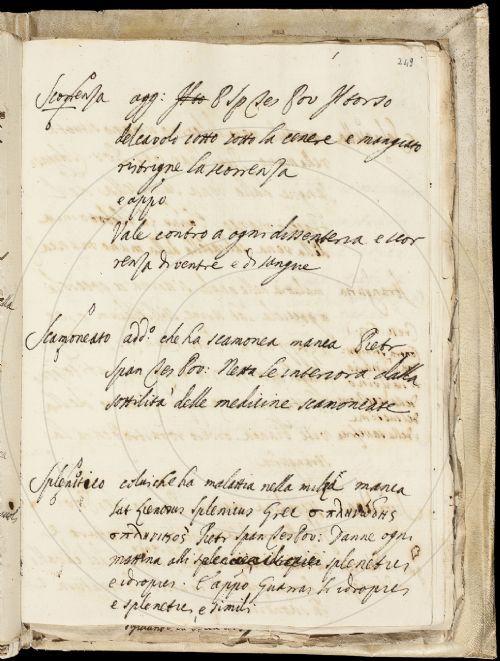 249
Scorrenza agg: Il torso
del cavolo cotto sotto la cenere e mangiato
ristrigne la scorrenza
e app.o
Vale contro a ogni dissenteria e scor
renza di ventre e di sangue
Scamoneato add.o che ha scamonea manca Pietr
Span Tes Pov: Netta le interiora dalla
sottilità delle medicine scamoneate
Splenitico colui che ha malattia nella milza manca
lat lienosus spleniticus Grec σπληνώδης
σπληνιτικός Pietr Span Tes Pov: Danne ogni
mattina alli splenetici
e idropici. E appo Guarrà li idropici
e splenetici, e simili